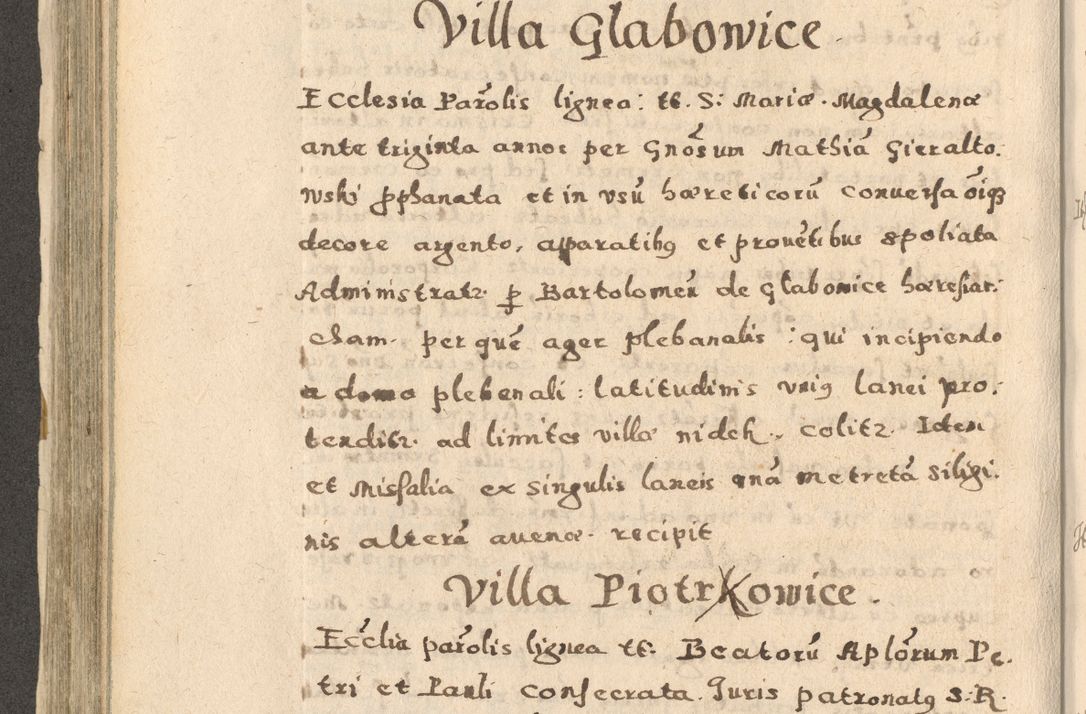 Villa Glabowice
Ecclesia Parõlis lignea: tt. S: Mariæ. Magdalenæ
ante triginta annos per Gnõsum Mathiã Gieralto.
wski pphanata et in usũ hæreticorũ conversa õiq3
decore argento, apparatibq et provẽtibus spoliata
Administratz. p Bartolomeũ de Glabowice hæresiar:
cham. per quẽ ager plebanalis: qui incipiendo
a domo plebenali: latitudinis uniq lanei pro:
tenditz. ad limites villæ nidek., colitz. Idem
et Missalia ex singulis laneis unã metretã Siligi:
nis alterã avenæ. recipit
Villa Piotrkowice.
Ecclia parõlis lignea tt. Beatorũ Aplõrum Pe.
tri et Pauli consecrata. Juris patronatq S. R.